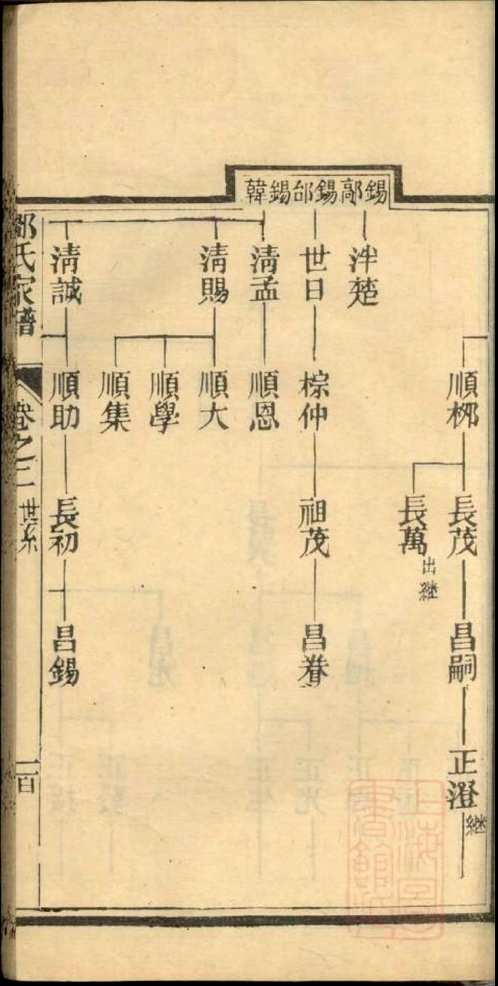 錫鄗錫邰錫韓
順栁
長茂
昌嗣
正澄
繼
長萬
出繼
泮楚
世日
棕仲
祖茂
昌眷
清孟
順恩
清賜
順大
順學
順集
清誠
順助
長初
昌錫
氏家譜
卷之二
世系
一百
上海圖書館藏